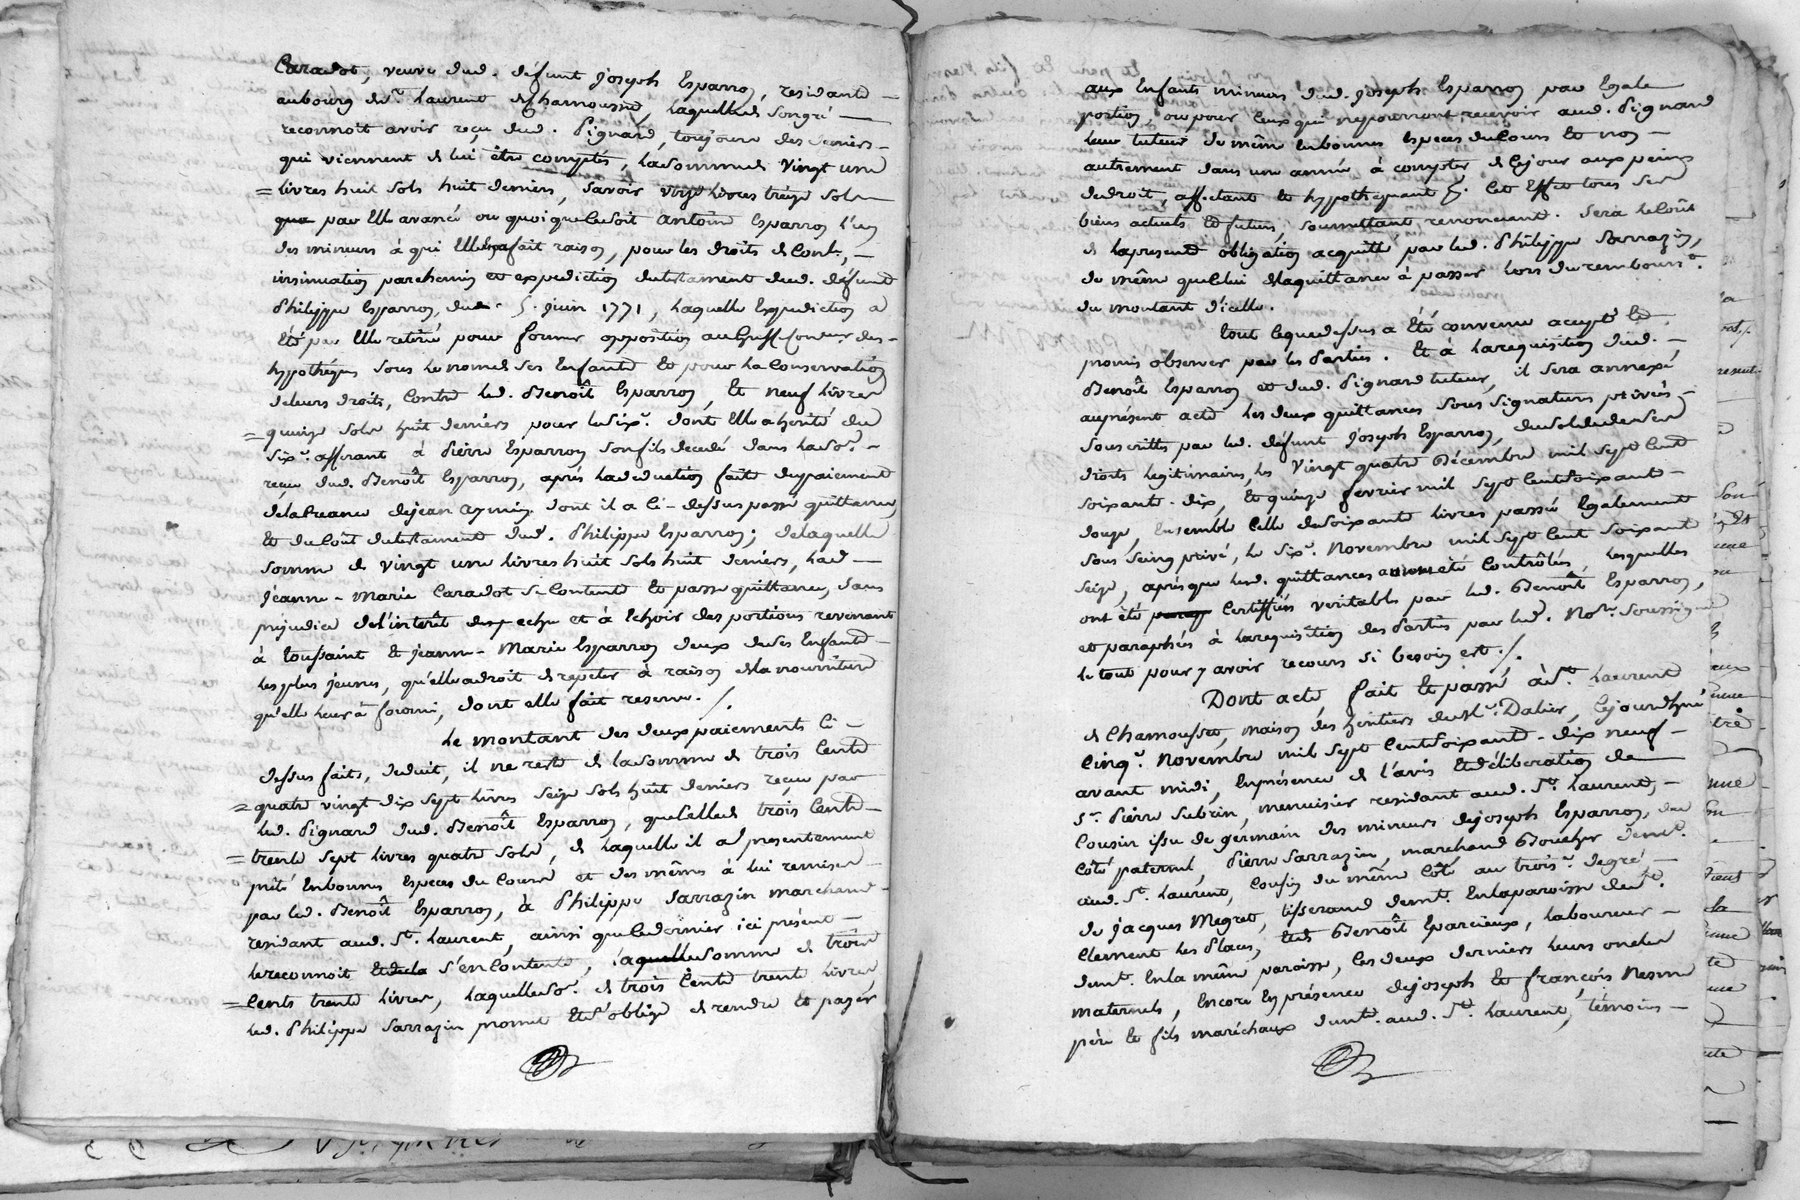 Caradot, veuve dud. défunt joseph Esparron, residante
au bourg de St. Laurent de chamousset, laquelle de son gré
reconnoit avoir reçu dud. Pignard, toujours des deniers
qui viennent de lui être comptés, la somme de vingt une
= livres huit sols huit deniers, savoir vingt livres treize sols
par elle avancé ou quoique ce soit antoine Esparron l'un
des mineurs à qui elle en a fait raison, pour les droits de Cont.,
insinuation parchemin et expedition du testament dud. défunt
Philippe Esparron, dud. 5. juin 1771, laquelle Expedition a
été par elle retiré pour former opposition au Greffe Conser. des
hypothéques sous le nom de ses Enfants et pour la Conservation
de leurs droits, contre led. Benoît Esparron, Et neuf livres
= quinze sols huit deniers pour le six.e dont elle a herité du
six.e afferant à Pierre Esparron son fils decedé dans la so.e
reçue dud. Benoît Esparron, aprés la deduction faite du paiement
de la Creance de jean aymin dont il a ci-dessus passé quittance,
Et du coût du testament dud. Philippe Esparron; de laquelle
somme de vingt une livres huit sols huit deniers, lad.
jeanne-Marie Caradot se contente et passe quittance, sans
préjudice de l'intérêt des echu et à échoir des portions revenant
à toussaint et jeanne-Marie Esparron deux de ses Enfants
les plus jeunes, qu'elle a droit de repeter à raison de la nourriture
qu'elle leur a fourni, dont elle fait reserve. /.
Le montant des deux paiements ci-
dessus faits, deduit, il ne reste de la somme de trois cents
= quatre vingt dix sept livres seize sols huit deniers reçue par
led. Pignard dud. Benoît Esparron, que celle de trois cents
= trente sept livres quatre sols, de laquelle il a presentement
prété en bonnes especes du cours et des mêmes à lui remises
par led. Benoît Esparron, à Philippe Sarrazin marchand
residant aud. St. Laurent, ainsi que le dernier ici présent
le reconnoit s'en contente, laquelle somme de trois
= Cents trente livres, laquelle so.e de trois cents trente livres
led. Philippe Sarrazin promet et s'oblige de rendre et payer
aux Enfants mineurs dud. joseph Esparron par Egale
portion, ou pour ceux qui ne pourront recevoir aud. Pignard
leur tuteur de même en bonnes especes du cours et non
autrement dans une année à compter de ce jour aux peines
de droit, affectant et hypothéquant à cet Effet tous ses
biens actuels et futurs, soumettant renonceant. Sera le coût
de la presente obligation acquitté par led. Philippe Sarrazin,
de même que celui de la quittance à passer lors du rembours.t
du montant d'icelle.
tout ce que dessus a été convenu accepté et
promis observer par les Parties. Et à la requisition dud.
Benoît Esparron et dud. Pignard tuteur, il sera annexé
au présent acte les deux quittances sous signature privée
souscrittes par led. défunt joseph Esparron, du solde de ses
droits legitimaires, les vingt quatre Décembre mil sept cent
soixante-dix, et quinze fevrier mil sept cent soixante-
douze, ensemble celle de soixante livres passée Egalement
sous seing privé, le six.e Novembre mil sept cent soixante
seize, aprés que lesd. quittances auront été contrôlées, lesquelles
ont été certiffiées veritables par led. Benoît Esparron,
et paraphés à la requisition des Parties par led. No.re soussigné
le tout pour y avoir recours si besoin est. /.
Dont acte, fait et passé à St. Laurent
de Chamousset, maison des heritiers de Mr. Dalier, cejourd'hui
cinq.e Novembre mil sept cent soixante-dix neuf
avant midi, en présence de l'avis et déliberation de
Sr. Pierre Subrin, menuisier residant aud. St. Laurent,
Cousin issu de germain des mineurs de joseph Esparron, du
côté paternel, Pierre Sarrazin, marchand Boucher dem.t
aud. St. Laurent, Cousin du même côté au trois.e degré,
de jacques Megret, tisserand dem.t en la paroisse de St.
Clement les Places, et de Benoît Eparcieux, laboureur
dem.t en la même paroisse, les deux derniers leurs oncles
maternels, Encore en présence de joseph et françois Nesme
pére et fils maréchaux dem.t aud. St. Laurent, témoins